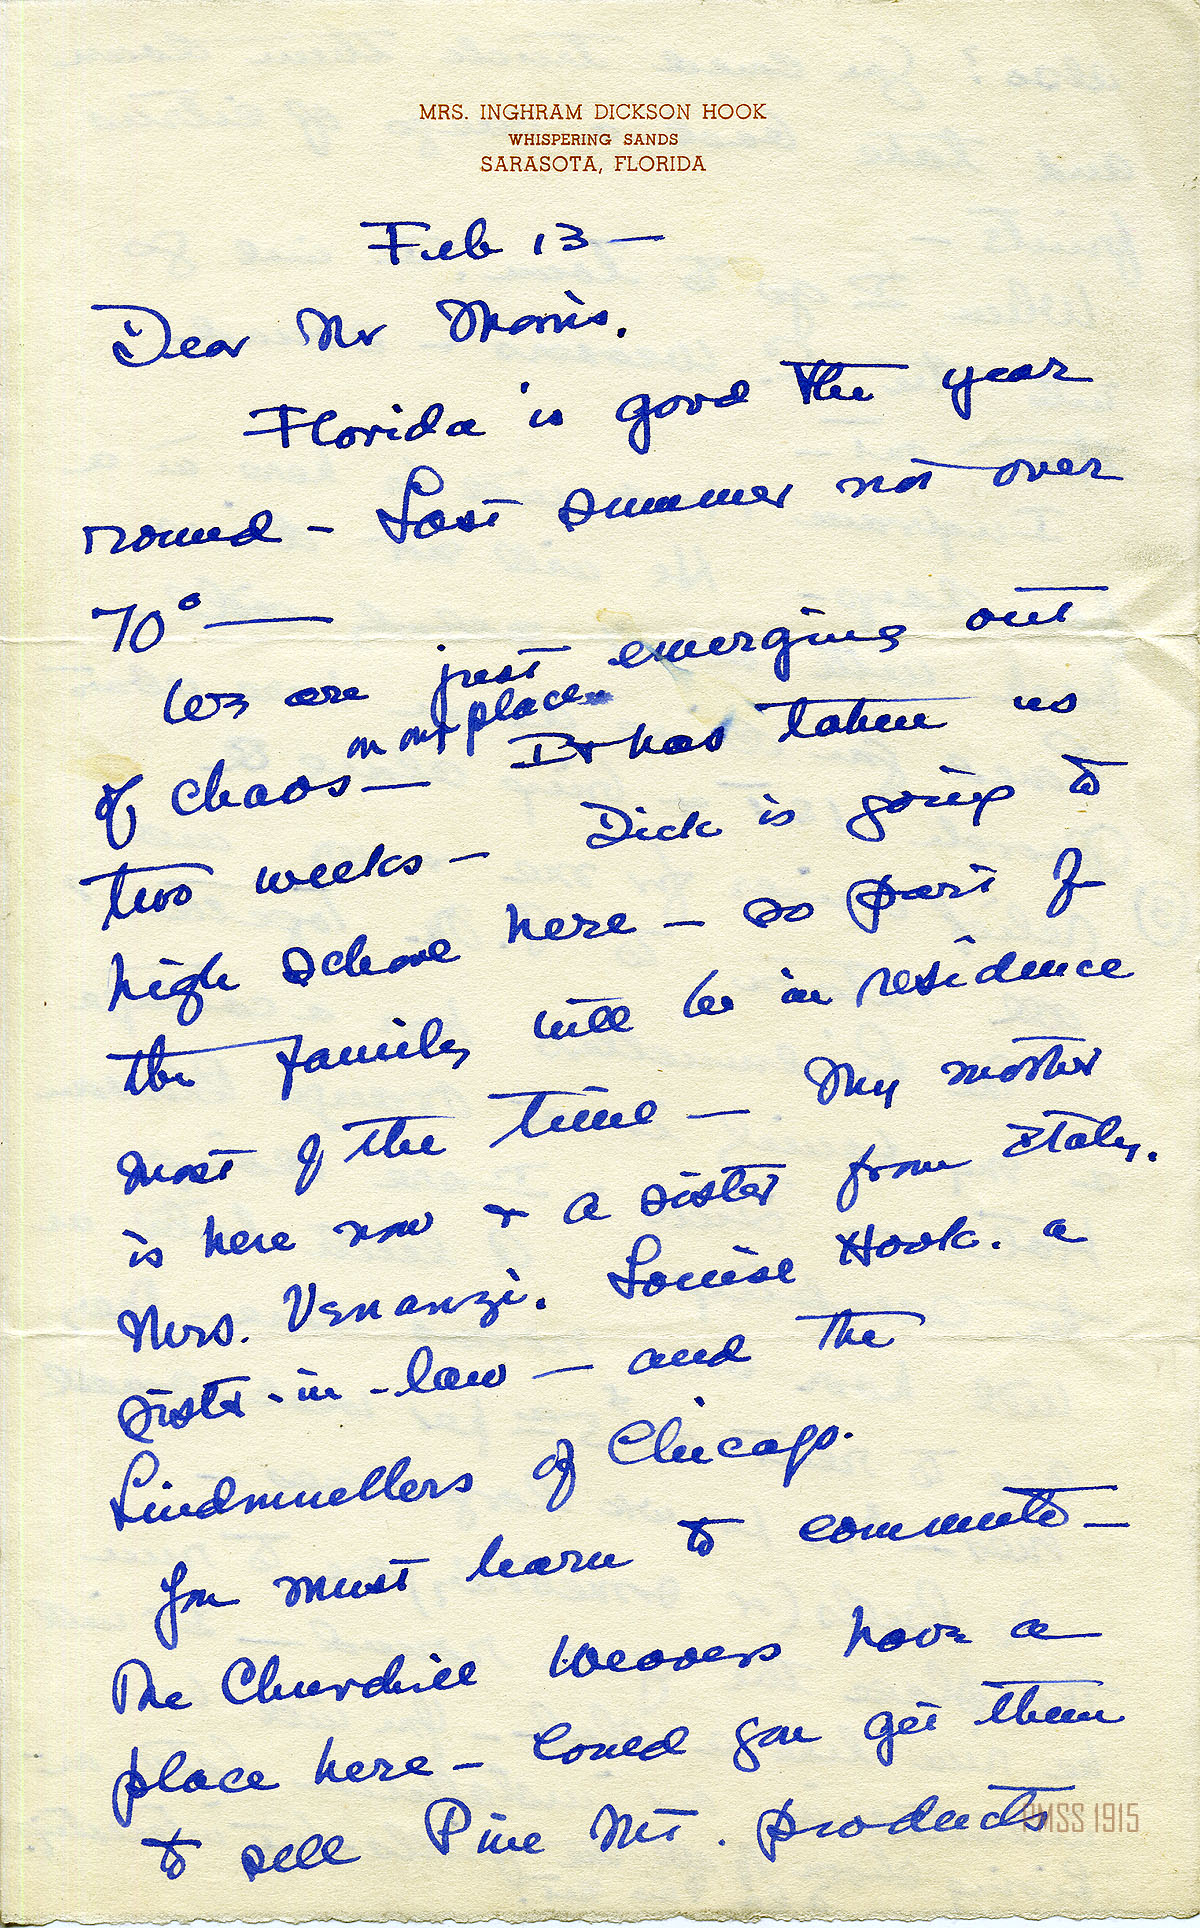 MRS. INGHRAM DICKSON HOOK
WHISPERING SANDS
SARASOTA, FLORIDA
Feb 13 —
Dear Mr Morris.
Florida is good the year
round — Last summer not over
70° —
We are just emerging out
on our place
of chaos — It has taken us
two weeks — Dick is going to
high school here — so part of
the family will be in residence
most of the time — My mother
is here now & a sister from Italy.
Mrs. Venanzi. Louise Hook. a
sister-in-law — and the
Lindmuellers of Chicago.
You must learn to commute —
The Churchill Weavers have a
place here — Could you get them
to sell Pine Mt. products
PMSS 1915